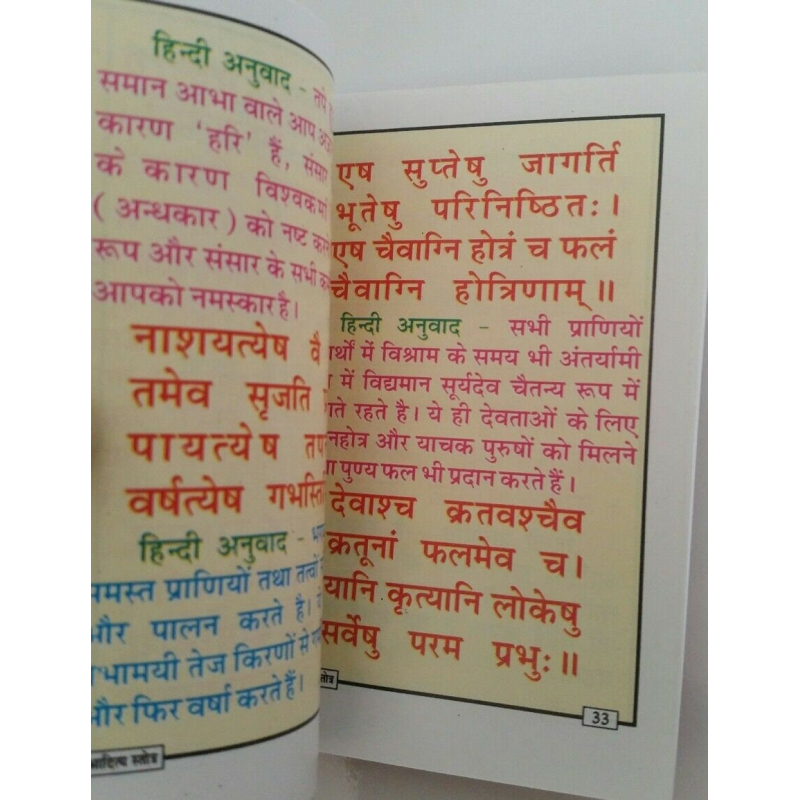 हिन्दी अनुवाद -
समान आभा वाले आप
कारण 'हरि' हैं, संसार
के कारण
( अन्धकार ) को नष्ट
रूप और संसार के सभी
आपको नमस्कार है।
नाशयत्येष वै
तमेव सृजति
पायत्येष
वर्षत्येष
हिन्दी अनुवाद -
प्राणियों तथा
और पालन करते है।
तेज किरणों से
और फिर वर्षा करते हैं।
स्तोत्र
एष सुप्तेषु जागर्ति
भूतेषु परिनिष्ठितः।
एष चैवाग्नि होत्रं च फलं
चैवाग्नि होत्रिणाम्॥
हिन्दी अनुवाद - सभी प्राणियों
में विश्राम के समय भी अंतर्यामी
में विद्यमान सूर्यदेव चैतन्य रूप में
रहते है। ये ही देवताओं के लिए
और याचक पुरुषों को मिलने
पुण्य फल भी प्रदान करते हैं।
देवाश्च क्रतवश्चैव
क्रतूनां फलमेव च।
यानि कृत्यानि लोकेषु
सर्वेषु परम प्रभुः॥
33